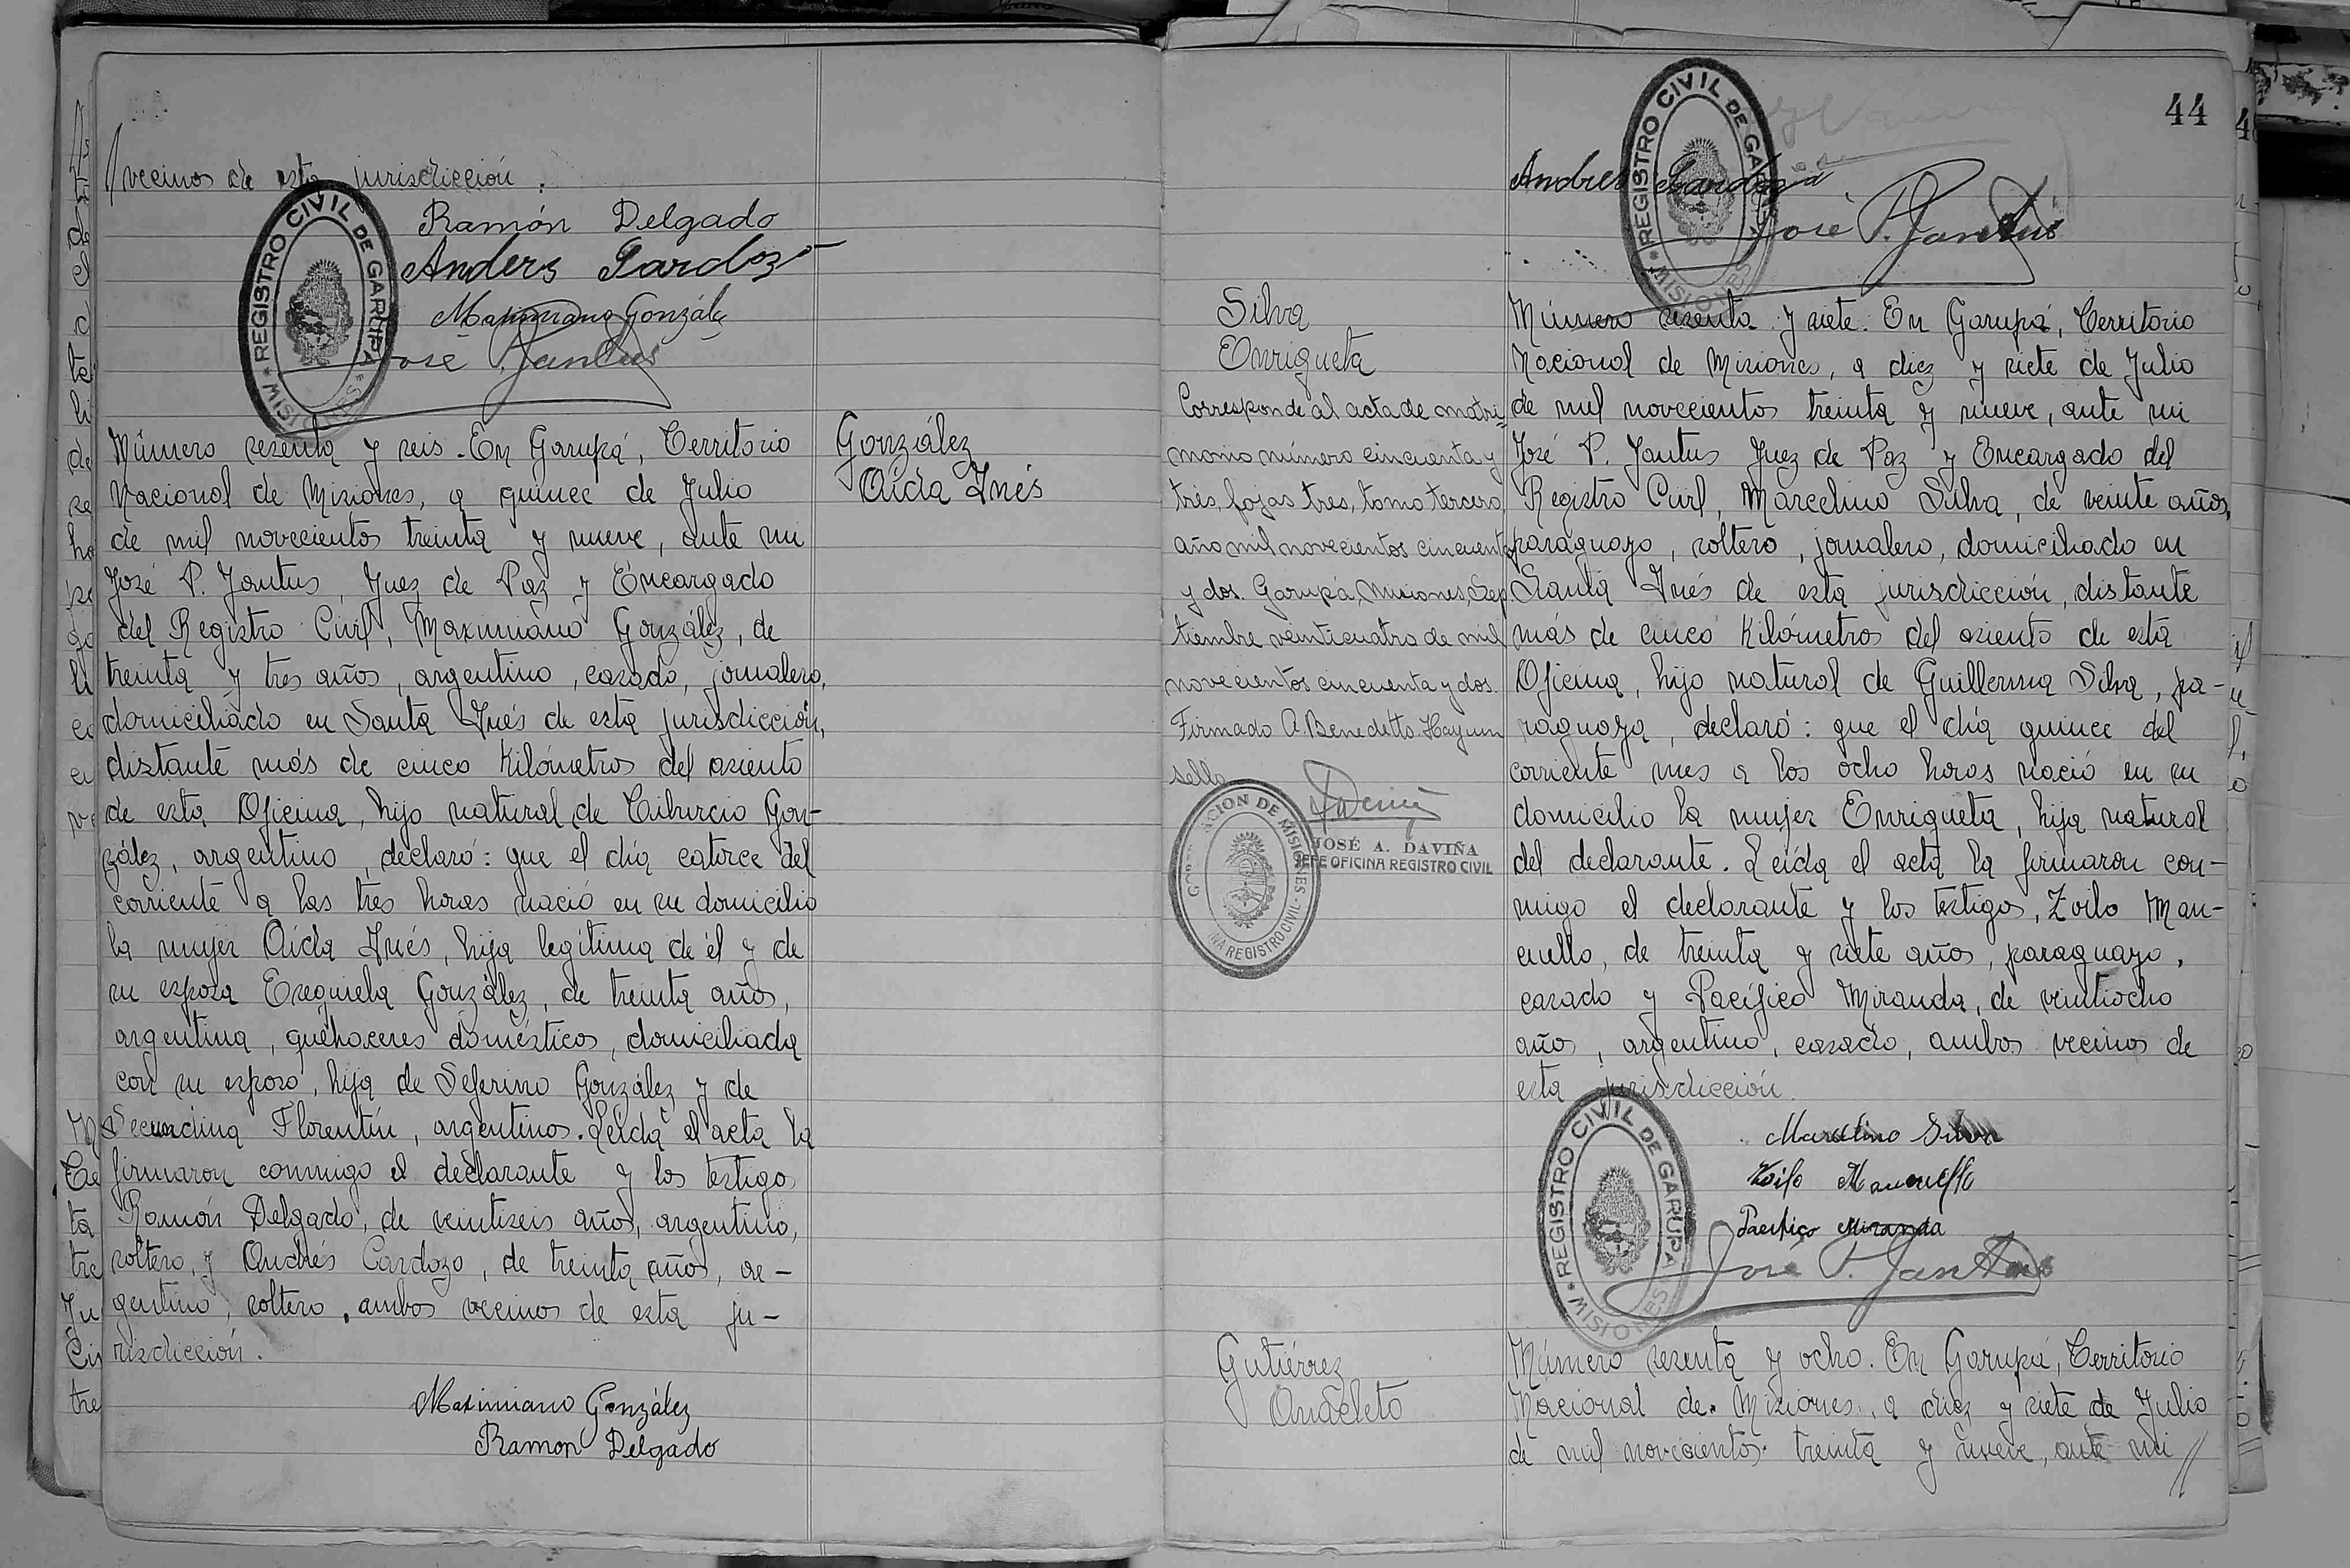 vecinos de esta jurisdicción.
Ramón Delgado
Anders Pardoz
Maximiano González
José P. Jantus
REGISTRO CIVIL DE GARUPA
* MISIONES *
Número sesenta y seis. En Garupá, Territorio
Nacional de Misiones, a quince de Julio
de mil novecientos treinta y nueve, ante mi
José P. Jantus, Juez de Paz y Encargado
del Registro Civil, Maximiano González, de
treinta y tres años, argentino, casado, jornalero,
domiciliado en Santa Inés de esta jurisdicción,
distante más de cinco kilómetros del asiento
de esta Oficina, hijo natural de Tiburcio Gon-
zález, argentino, declaró: que el día catorce del
corriente a las tres horas nació en su domicilio
la mujer Aída Inés, hija legítima de él y de
su esposa Exequiela González, de treinta años,
argentina, quehaceres domésticos, domiciliada
con su esposo, hija de Seferino González y de
Secundina Florentín, argentinos. Leída el acta la
firmaron conmigo el declarante y los testigos
Ramón Delgado, de veintiseis años, argentino,
soltero, y Andrés Cardozo, de treinta años, ar-
gentino, soltero, ambos vecinos de esta ju-
risdicción.
Maximiano González
Ramon Delgado
González
Aída Inés
44
Andres Cardozo
José P. Jantus
REGISTRO CIVIL DE GARUPA
* MISIONES
Silva
Enriqueta
Corresponde al acta de matri-
monio número cincuenta y
tres, fojas tres, tomo tercero,
año mil novecientos cincuenta
y dos. Garupá, Misiones, Sep-
tiembre veinticuatro de mil
novecientos cincuenta y dos.
Firmado A. Benedetto. Hay un
sello
JOSÉ A. DAVIÑA
JEFE OFICINA REGISTRO CIVIL
ACION DE MISIONES
NA REGISTRO CIVIL
Número sesenta y siete. En Garupá, Territorio
Nacional de Misiones, a diez y siete de Julio
de mil novecientos treinta y nueve, ante mi
José P. Jantus Juez de Paz y Encargado del
Registro Civil, Marcelino Silva, de veinte años,
paraguayo, soltero, jornalero, domiciliado en
Santa Inés de esta jurisdicción, distante
más de cinco kilómetros del asiento de esta
Oficina, hijo natural de Guillerma Silva, pa-
raguaya, declaró: que el día quince del
corriente mes a las ocho horas nació en su
domicilio la mujer Enriqueta, hija natural
del declarante. Leída el acta la firmaron con-
migo el declarante y los testigos, Zoilo Man-
cuello, de treinta y siete años, paraguayo,
casado y Pacífico Miranda, de veintiocho
años, argentino, casado, ambos vecinos de
esta jurisdicción.
Marcelino Silva
Zoilo Mancuello
Pacifico Miranda
José P. Jantus
REGISTRO CIVIL DE GARUPA
* MISIONES
Gutiérrez
Anacleto
Número sesenta y ocho. En Garupá, Territorio
Nacional de Misiones, a diez y siete de Julio
de mil novecientos treinta y nueve, ante mi